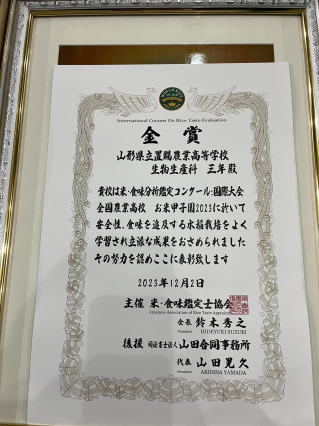 International Contest On Rice Taste Evaluation
金賞
山形県立置賜農業高等学校
生物生産科 三年殿
貴校は米・食味分析鑑定コンクール:国際大会
全国農業高校 お米甲子園2023に於いて
安全性、食味を追及する水稲栽培をよく
学習され立派な成果をおさめられました
その努力を認めここに表彰致します
2023年12月2日
主催 米・食味鑑定士協会
Japanese Association of Rice Taste Appraisers
会長 鈴木秀之
President HIDEYUKI SUZUKI
後援 司法書士法人 山田合同事務所
代表 山田晃久
President AKIHISA YAMADA